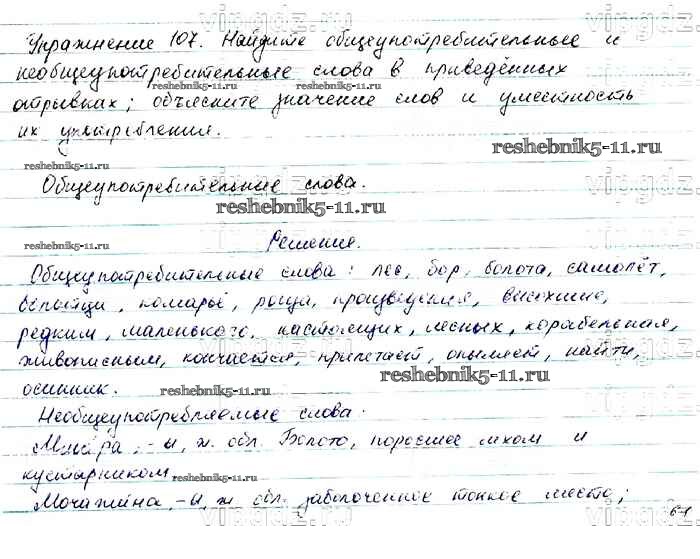 Упражнение 107. Найдите общеупотребительные и
необщеупотребительные слова в приведённых
отрывках; объясните значение слов и уместность
их употребления.
reshebnik5-11.ru
Общеупотребительные слова.
reshebnik5-11.ru
Решение.
Общеупотребительные слова: лес, бор, болота, самолёт,
комарьё, роща, произведения, высохшие,
редким, маленького, настоящих, лесных, корабельная,
живописным, кончается, прилетает, опыляет, найти,
осинник.
reshebnik5-11.ru
Необщеупотребляемые слова:
Мшара, -ы, ж. обл. Болото, поросшее мхом и
кустарником
reshebnik5-11.ru
Мочажина, -ы, ж обл. заболоченное топкое место;
61